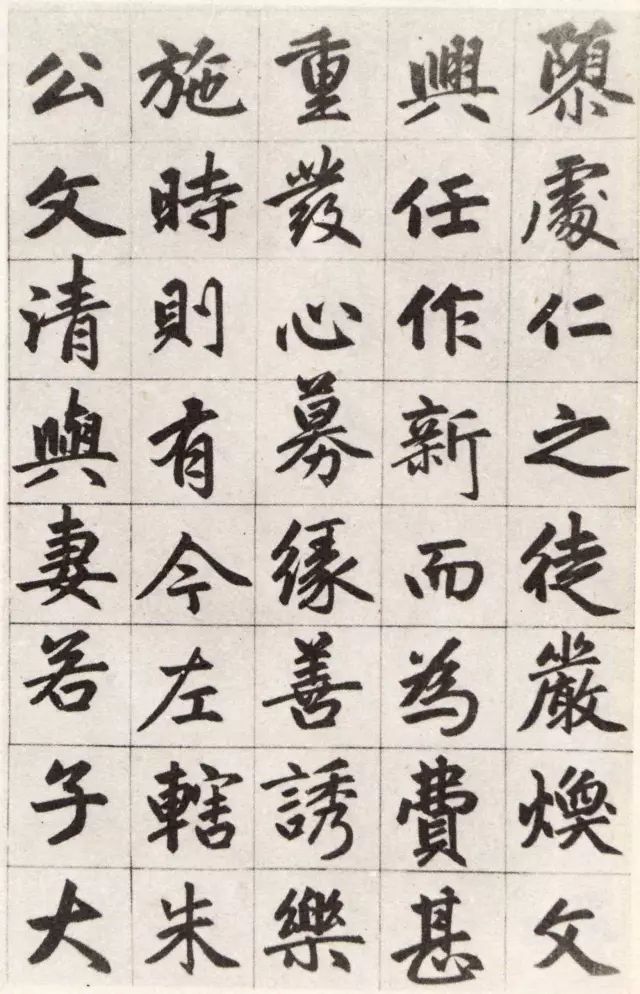 處仁之徒嚴煥文
興任作新而為費甚
重發心募緣善誘樂
施時則有今左轄朱
公文清與妻若子大